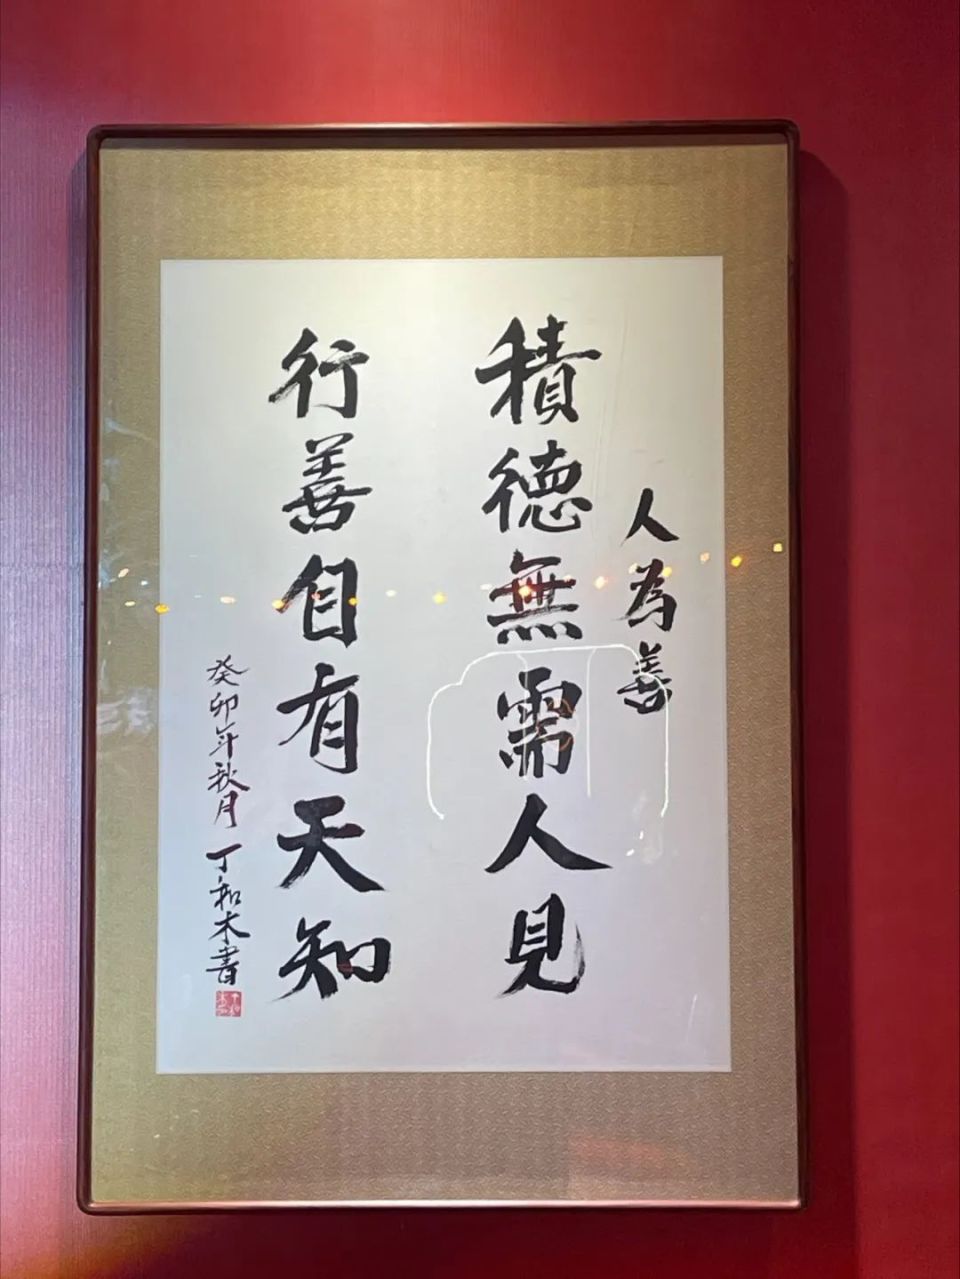 人為善
積德無需人見
行善自有天知
癸卯年秋月丁和木書